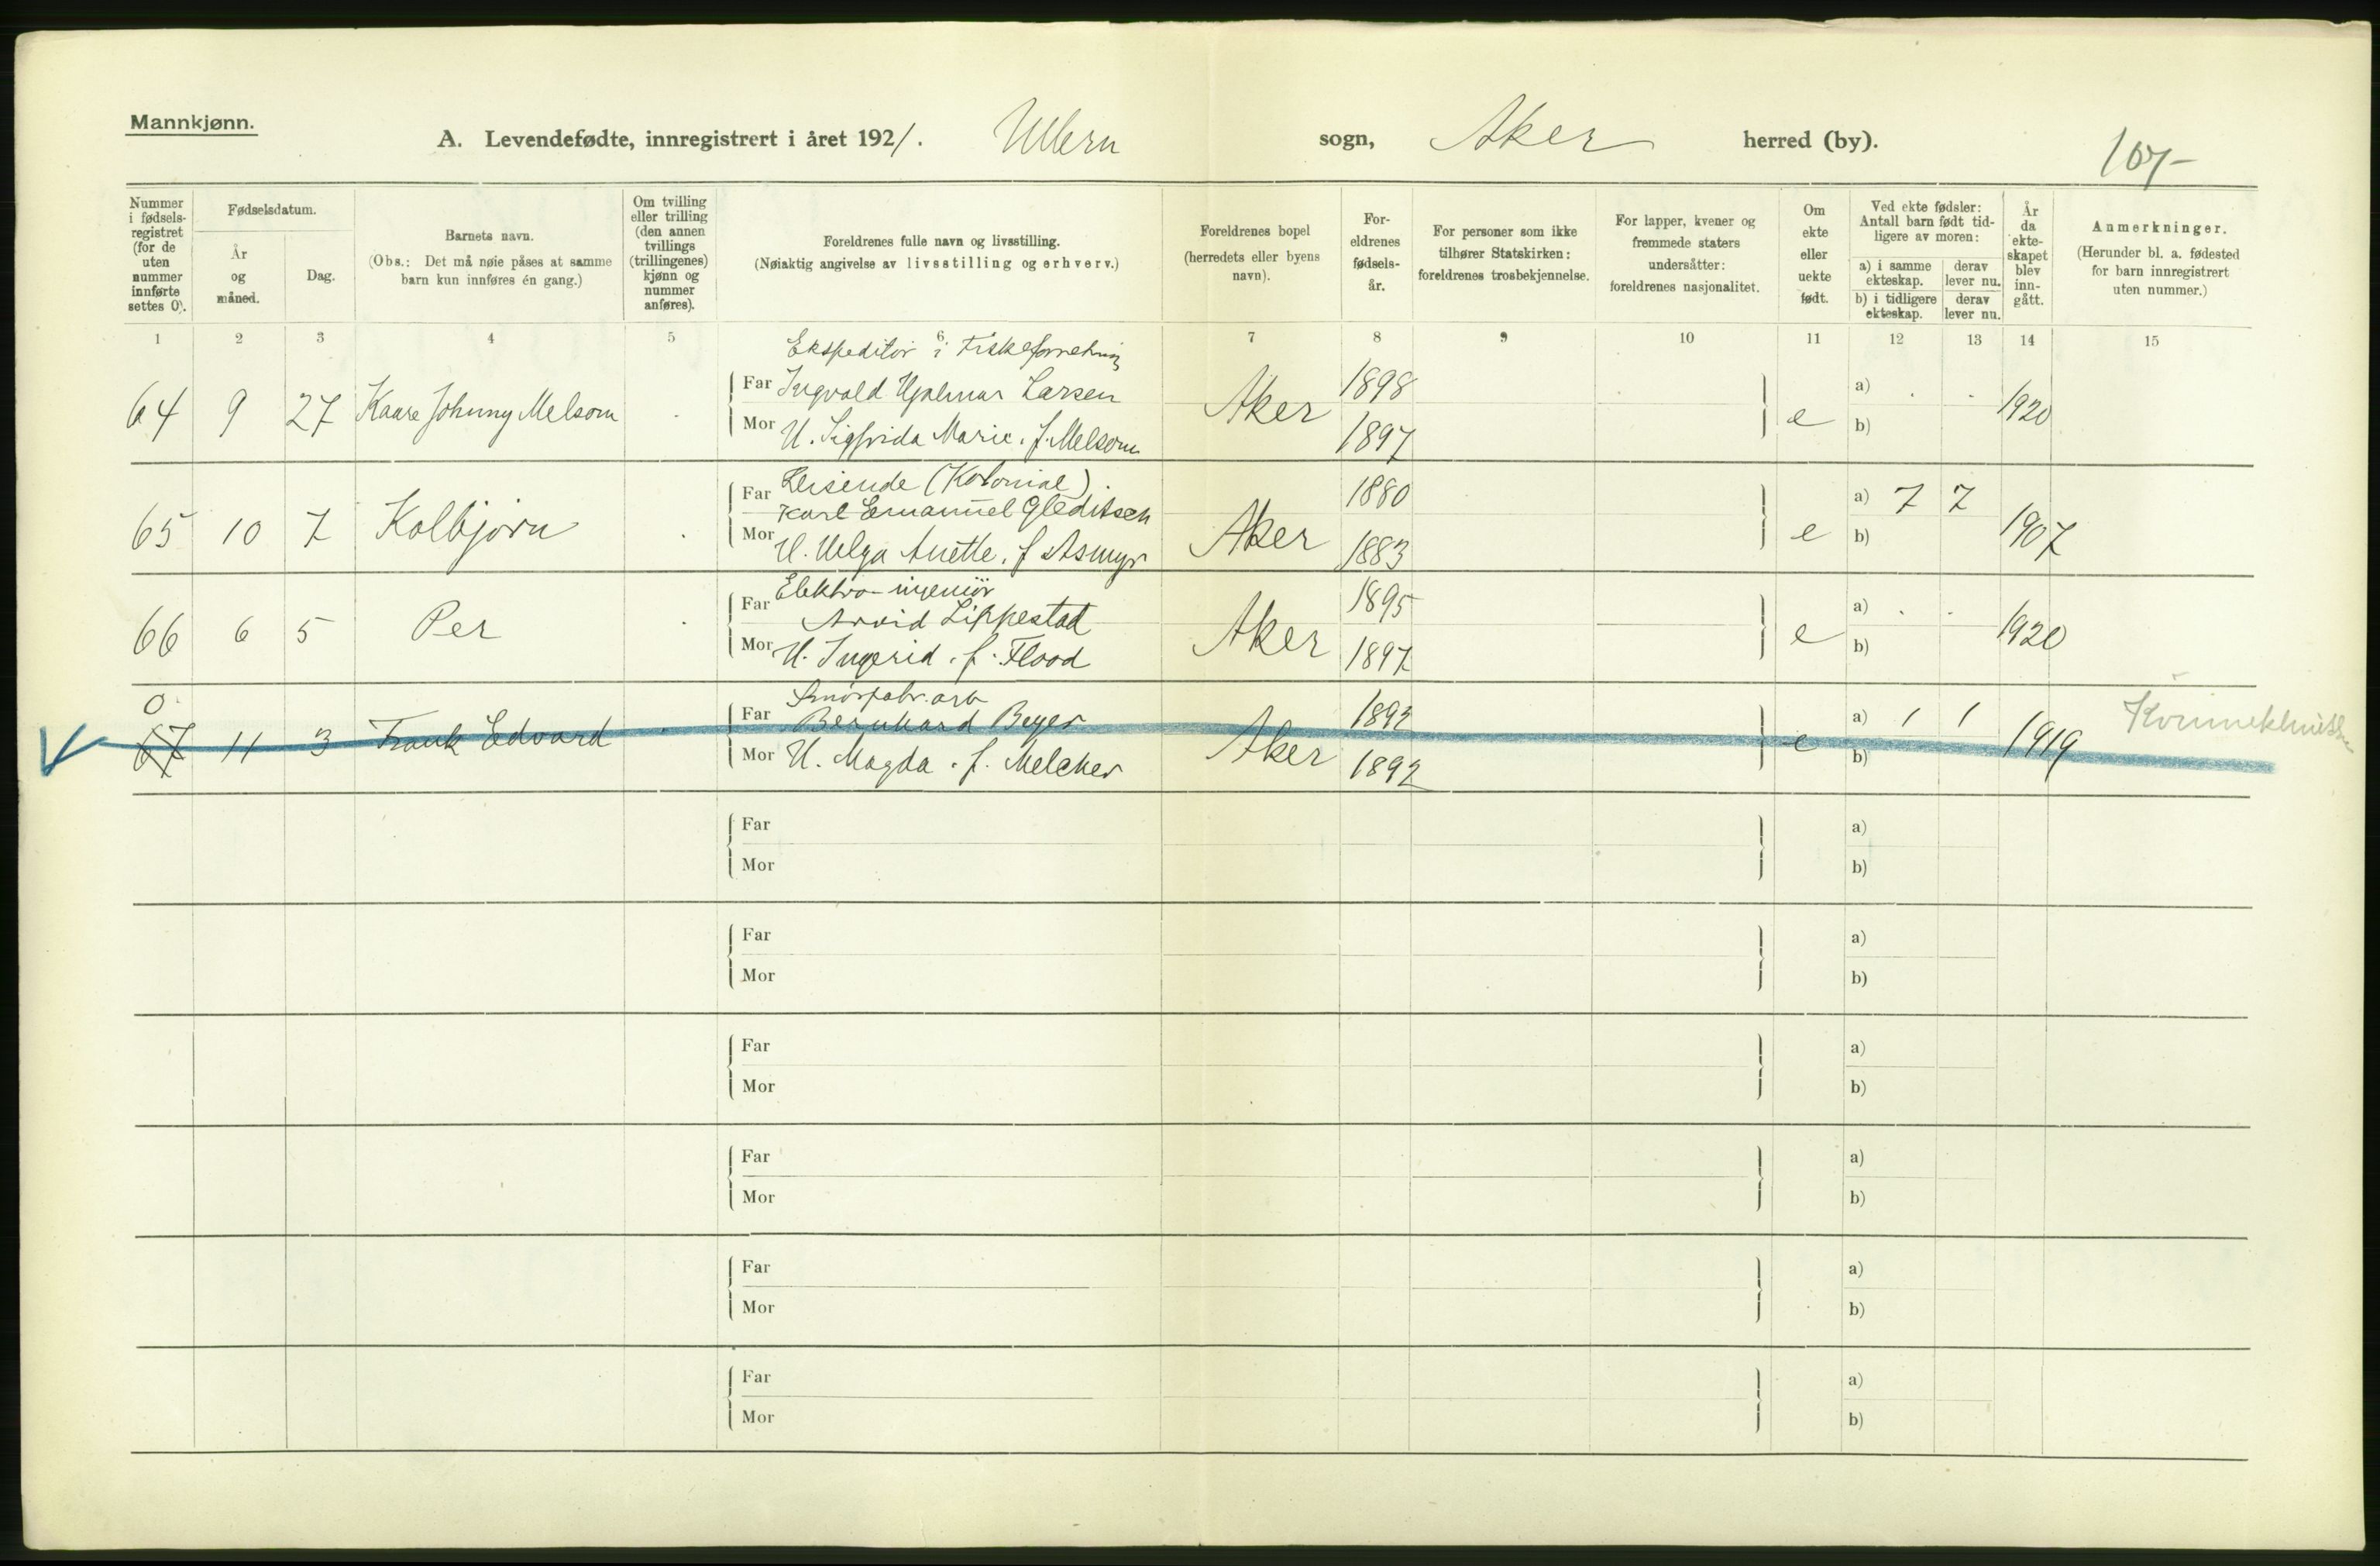 Mannkjønn.
A. Levendefødte, innregistrert i året 1921. Ullern sogn, Aker herred (by).
107-
Nummer i fødsels-registret (for de uten nummer innførte settes 0).
Fødselsdatum.
År og måned.
Dag.
Barnets navn.
(Obs.: Det må nøie påses at samme barn kun innføres én gang.)
Om tvilling eller trilling (den annen tvillings (trillingenes) kjønn og nummer anføres).
Foreldrenes fulle navn og livsstilling.
(Nøiaktig angivelse av livsstilling og erhverv.)
Foreldrenes bopel (herredets eller byens navn).
For-eldrenes fødsels-år.
For personer som ikke tilhører Statskirken: foreldrenes trosbekjennelse.
For lapper, kvener og fremmede staters undersåtter: foreldrenes nasjonalitet.
Om ekte eller uekte født.
Ved ekte fødsler: Antall barn født tid-ligere av moren:
a) i samme ekteskap.
derav lever nu.
b) i tidligere ekteskap.
derav lever nu.
År da ekte-skapet blev inn-gått.
Anmerkninger.
(Herunder bl. a. fødested for barn innregistrert uten nummer.)
1 2 3 4 5 6 7 8 9 10 11 12 13 14 15
Ekspeditør i Fiskeforretning
64 9 27 Kaare Johnny Melsom . Far Ingvald Hjalmar Larsen Aker 1898 e a) . . 1920
Mor H. Sigfrida Marie. f. Melsom 1897 b)
Reisende (Kolonial).
65 10 7 Kolbjørn . Far Karl Emanuel Gleditsch Aker 1880 e a) 7 7 1907
Mor H. Helga Anette. f Asmyr 1883 b)
Elektro-ingeniör
66 6 5 Per . Far Arvid Lippestad Aker 1895 e a) . . 1920
Mor H. Ingerid. f. Flood 1897 b)
0. Smørfabr. arb
67 11 3 Frank Edvard . Far Bernhard Beyer Aker 1893 e a) 1 1 1919
Mor H. Magda. f. Melcher 1892 b)
Far a)
Mor b)
Far a)
Mor b)
Far a)
Mor b)
Far a)
Mor b)
Far a)
Mor b)
Far a)
Mor b)